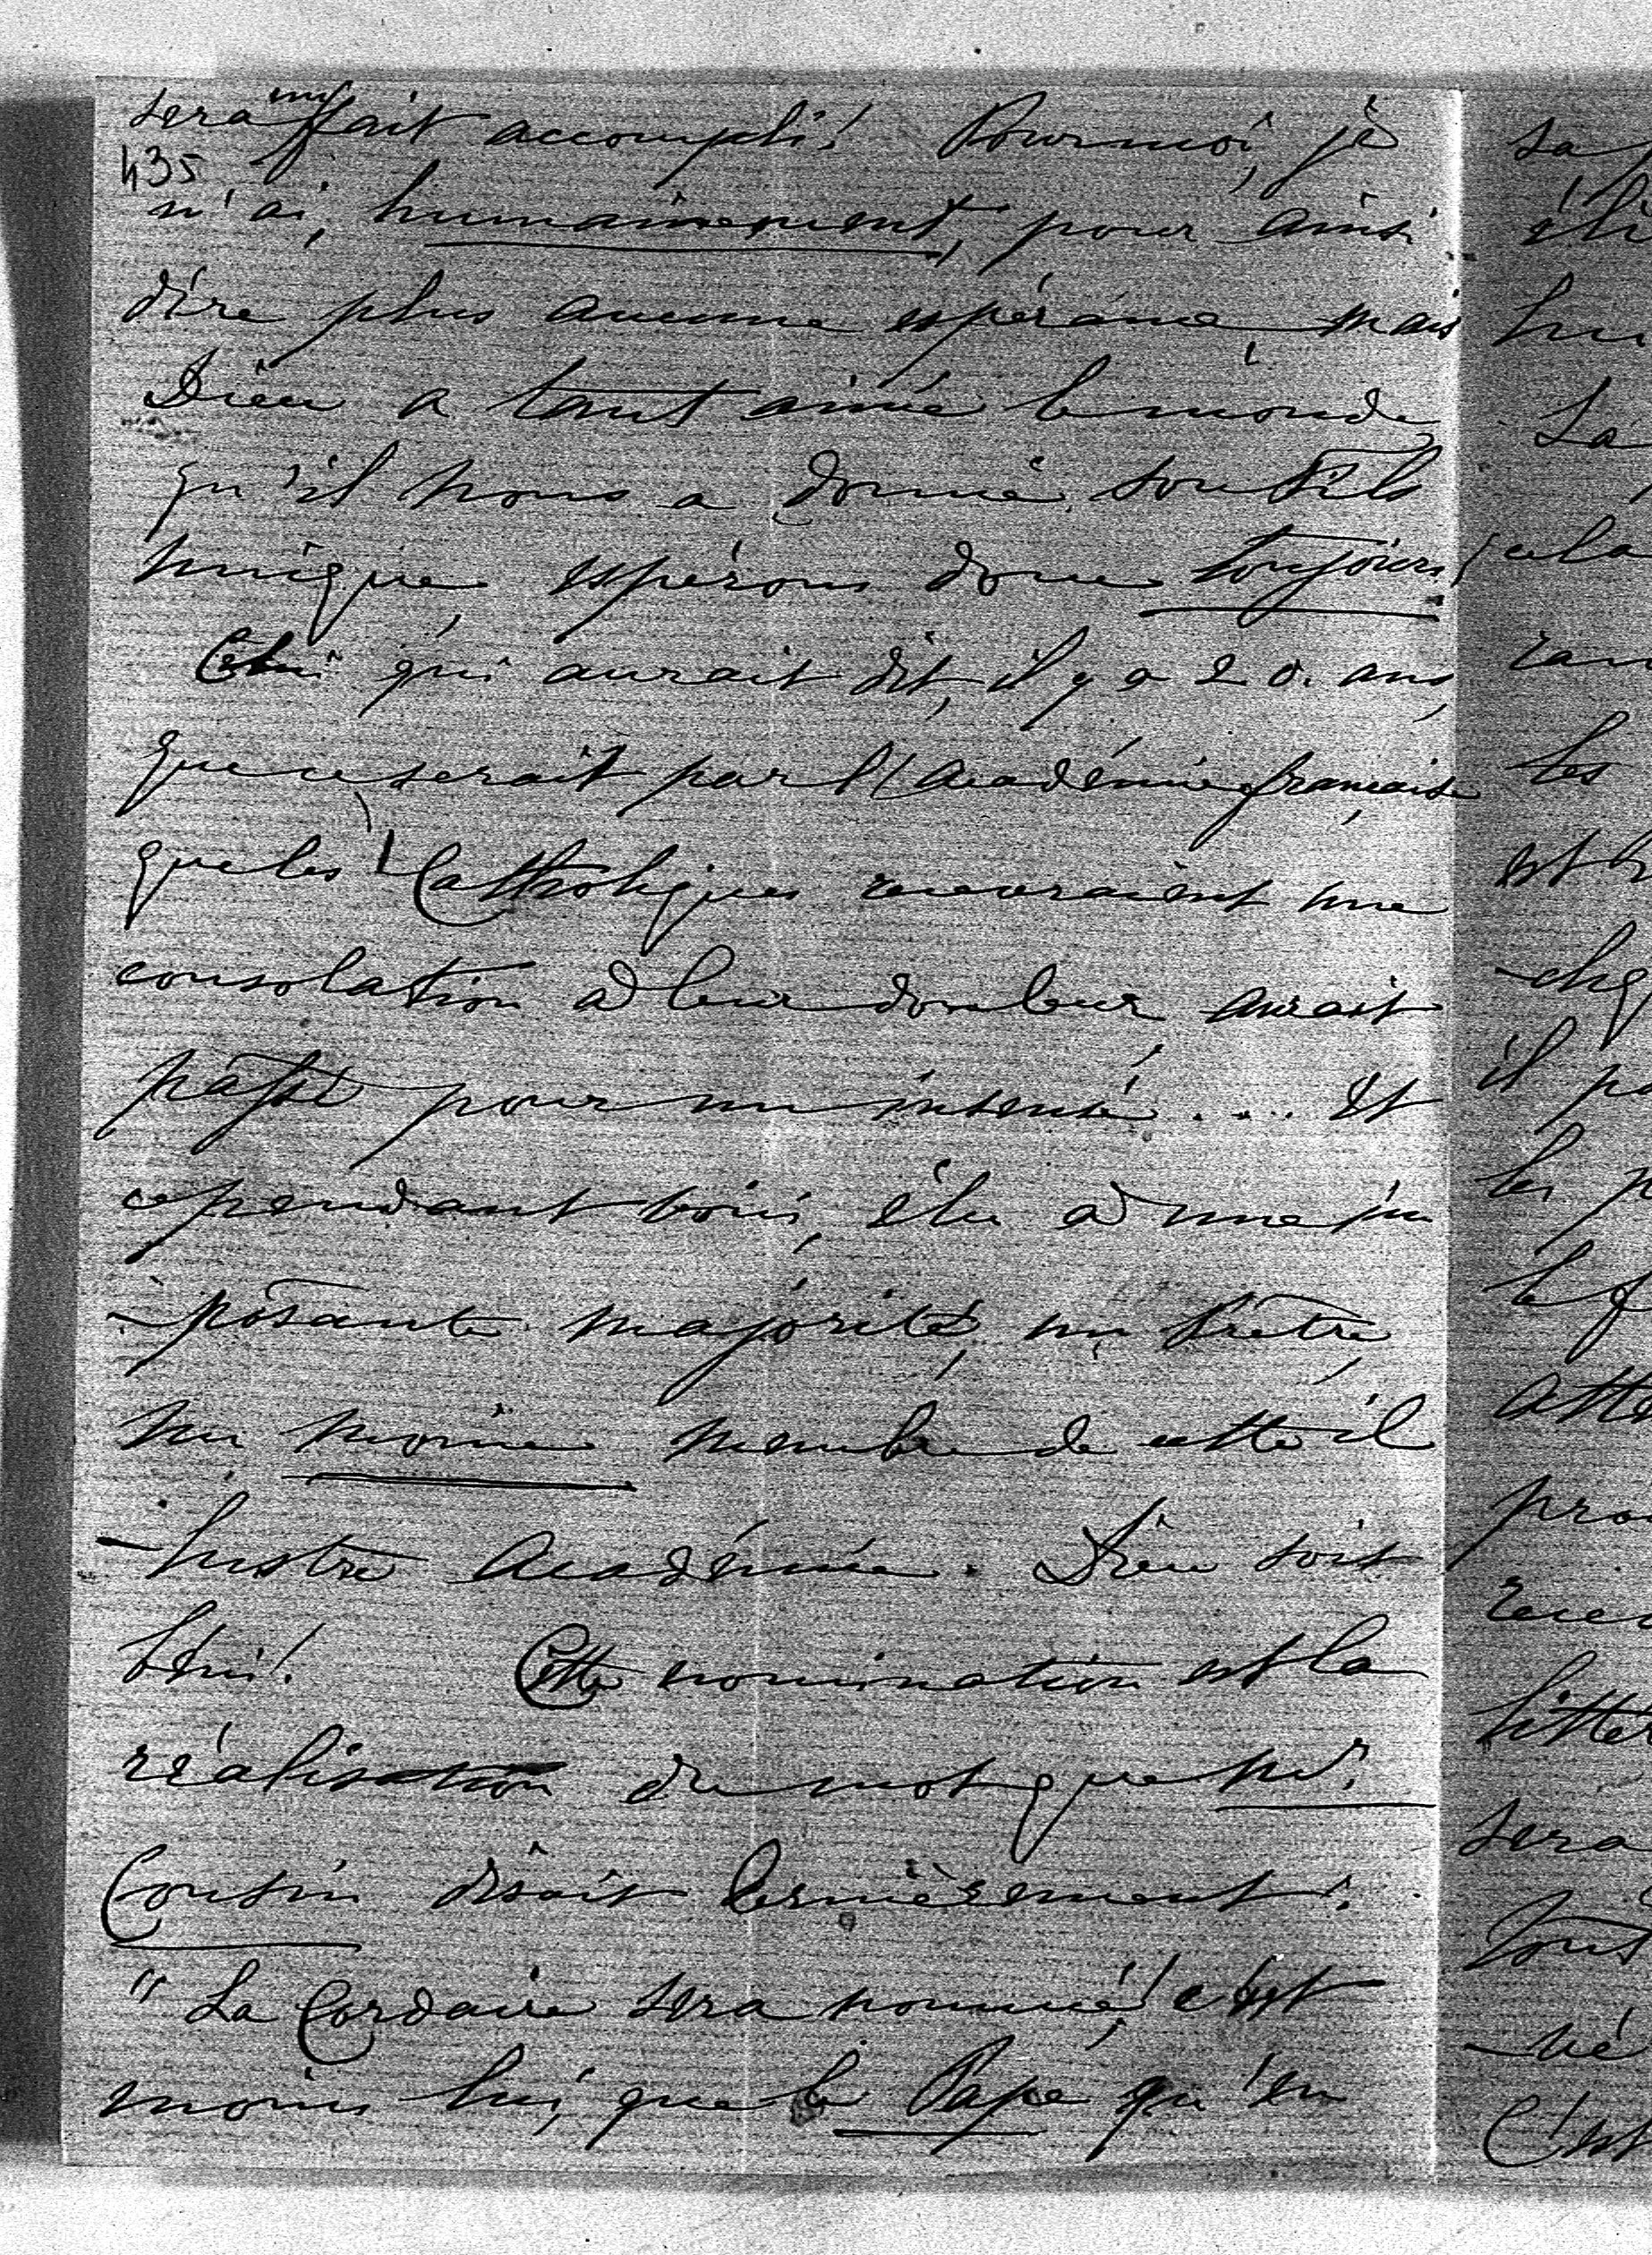 sera un fait accompli! Pour moi, je
435
n'ai, humainement, pour ainsi
dire plus aucune espérance mais
Dieu a tant aimé le monde
qu'il nous a donné son Fils
unique, espérons donc toujours!
Celui qui aurait dit, il y a 20. ans,
que ce serait par l'Académie française
que les Catholiques recevraient une
consolation à leur douleur, aurait
passé pour un insensé .... Et
cependant voici, élu à une im
-posante majorité, un Prêtre,
un moine membre de cette il
-lustre Académie. Dieu soit
béni! Cette nomination est la
réalisation du mot que Mr.
Cousin disait dernièrement:
"La Cordaire sera nommé, c'est
moins lui, que le Pape qu'en
sa
éli
La
cela
les
est
il p
les p
le f
atte
pro
litté
sera
tout
-né
C'est